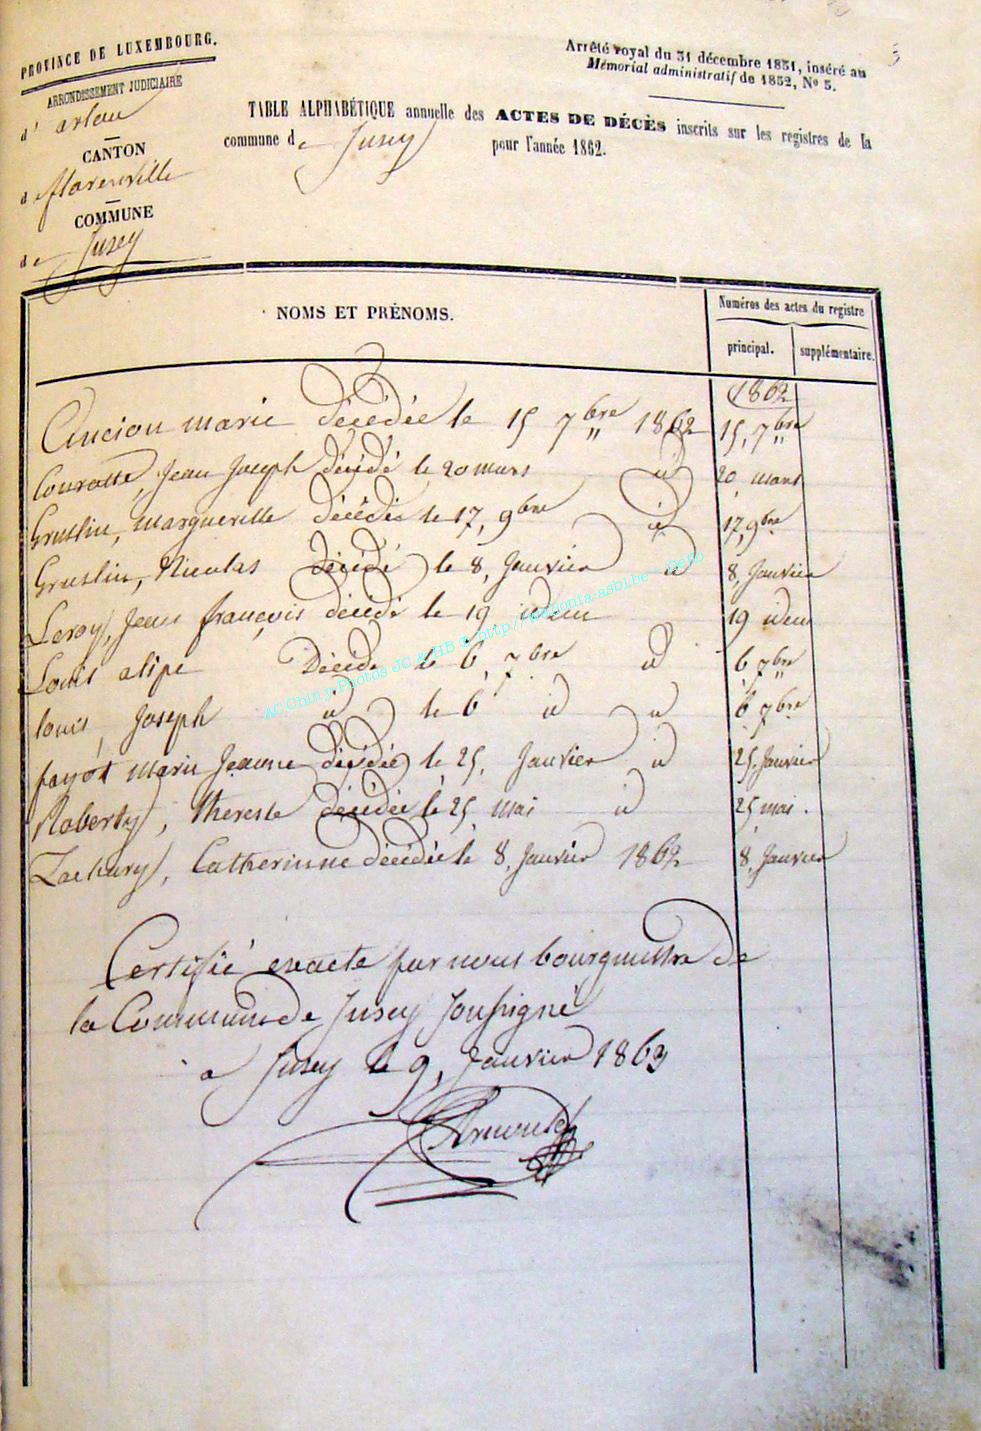 PROVINCE DE LUXEMBOURG.
ARRONDISSEMENT JUDICIAIRE
d' arlon
CANTON
de florenville
COMMUNE
de Jusey
Arrêté royal du 31 décembre 1831, inséré au
Mémorial administratif de 1832, No 5.
TABLE ALPHABÉTIQUE annuelle des ACTES DE DÉCÈS inscrits sur les registres de la
commune de Jusey pour l'année 1862.
NOMS ET PRÉNOMS.
Numéros des actes du registre
principal. supplémentaire.
1862
Ancion marie décédée le 15 7bre 1862 15, 7bre
Courotte, Jean Joseph décédé le 20 mars id 20 mars
Gruslin, margueritte décédée le 17, 9bre id 17, 9bre
Gruslin, Nicolas décédé le 8, Janvier id 8, Janvier
Leroy, Jean françois décédé le 19 idem 19 idem
Louis alipe Décédé le 6, 7bre id 6, 7bre
louis, Joseph id le 6 id id 6 7bre
payot marie Jeanne décédée le 25, Janvier id 25, Janvier
Roberty, therese décédée le 25 mai id 25 mai.
Zachary, Catherinne décédée le 8, Janvier 1862 8, Janvier
Certifié exacte par nous bourgmestre de
la Commune de Jusey Soussigné
a Jusey le 9, Janvier 1863
Arnould